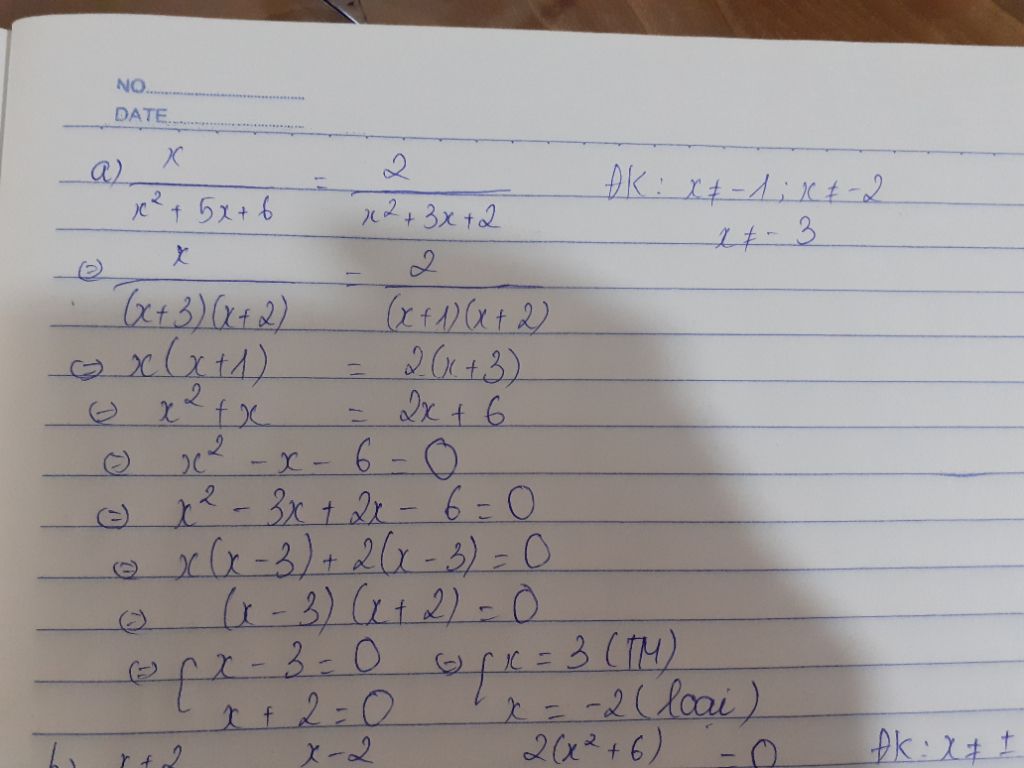 NO
DATE
a) x / (x² + 5x + 6) = 2 / (x² + 3x + 2) ĐK: x ≠ -1; x ≠ -2
x ≠ -3
⇔ x / ((x+3)(x+2)) = 2 / ((x+1)(x+2))
⇔ x(x+1) = 2(x+3)
⇔ x² + x = 2x + 6
⇔ x² - x - 6 = 0
⇔ x² - 3x + 2x - 6 = 0
⇔ x(x-3) + 2(x-3) = 0
⇔ (x-3)(x+2) = 0
⇔ { x - 3 = 0 ⇔ { x = 3 (TM)
x + 2 = 0 x = -2 (loại)
b) x+2 x-2 2(x²+6) = 0 ĐK: x ≠ ±